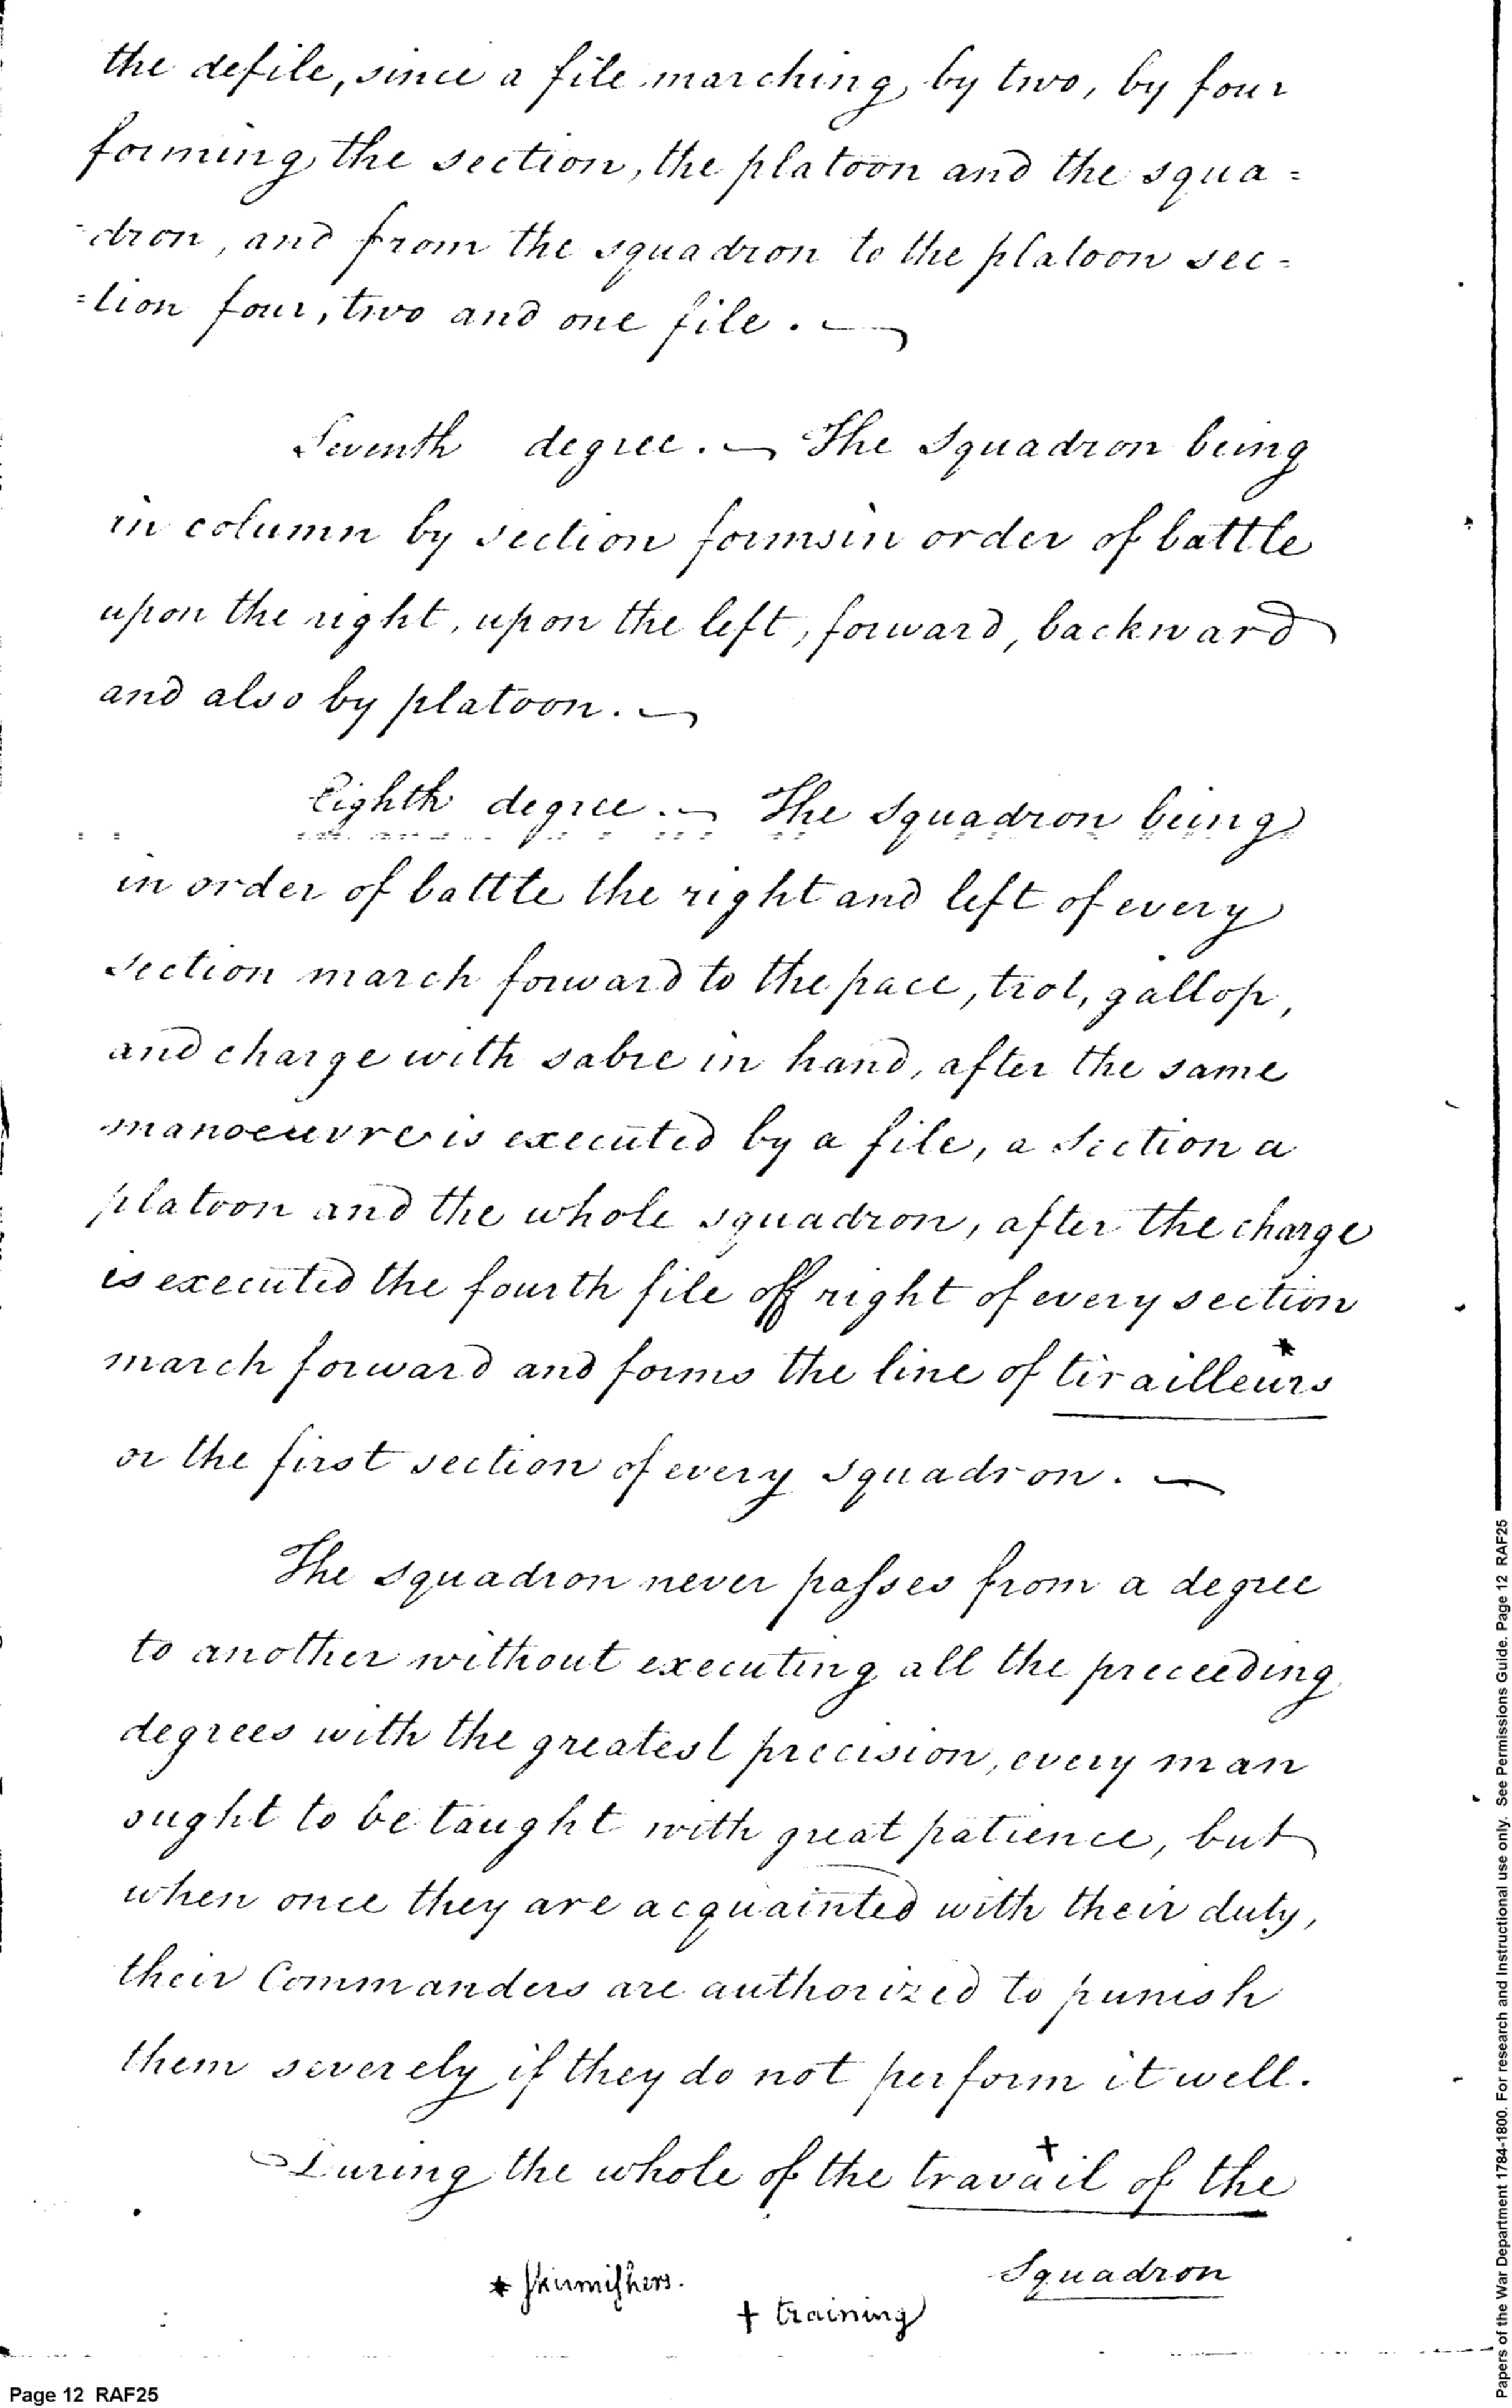 the defile, since a file marching, by two, by four
forming, the section, the platoon and the squa=
-dron, and from the squadron to the platoon sec=
=tion four, two and one file. —
Seventh degree. — The Squadron being
in column by section forms in order of battle
upon the right, upon the left, forward, backward
and also by platoon. —
Eighth degree. — The Squadron being
in order of battle the right and left of every
section march forward to the pace, trot, gallop,
and charge with sabre in hand, after the same
manoeuvre is executed by a file, a Section a
platoon and the whole squadron, after the charge
is executed the fourth file off right of every section
march forward and forms the line of tirailleurs *
or the first section of every Squadron. —
The Squadron never passes from a degree
to another without executing all the preceeding
degrees with the greatest precision, every man
ought to be taught with great patience, but
when once they are acquainted with their duty,
their Commanders are authorized to punish
them severely if they do not perform it well.
During the whole of the travail + of the
Squadron
* skirmishers.
+ training
Page 12 RAF25
Papers of the War Department 1784-1800. For research and instructional use only. See Permissions Guide. Page 12 RAF25